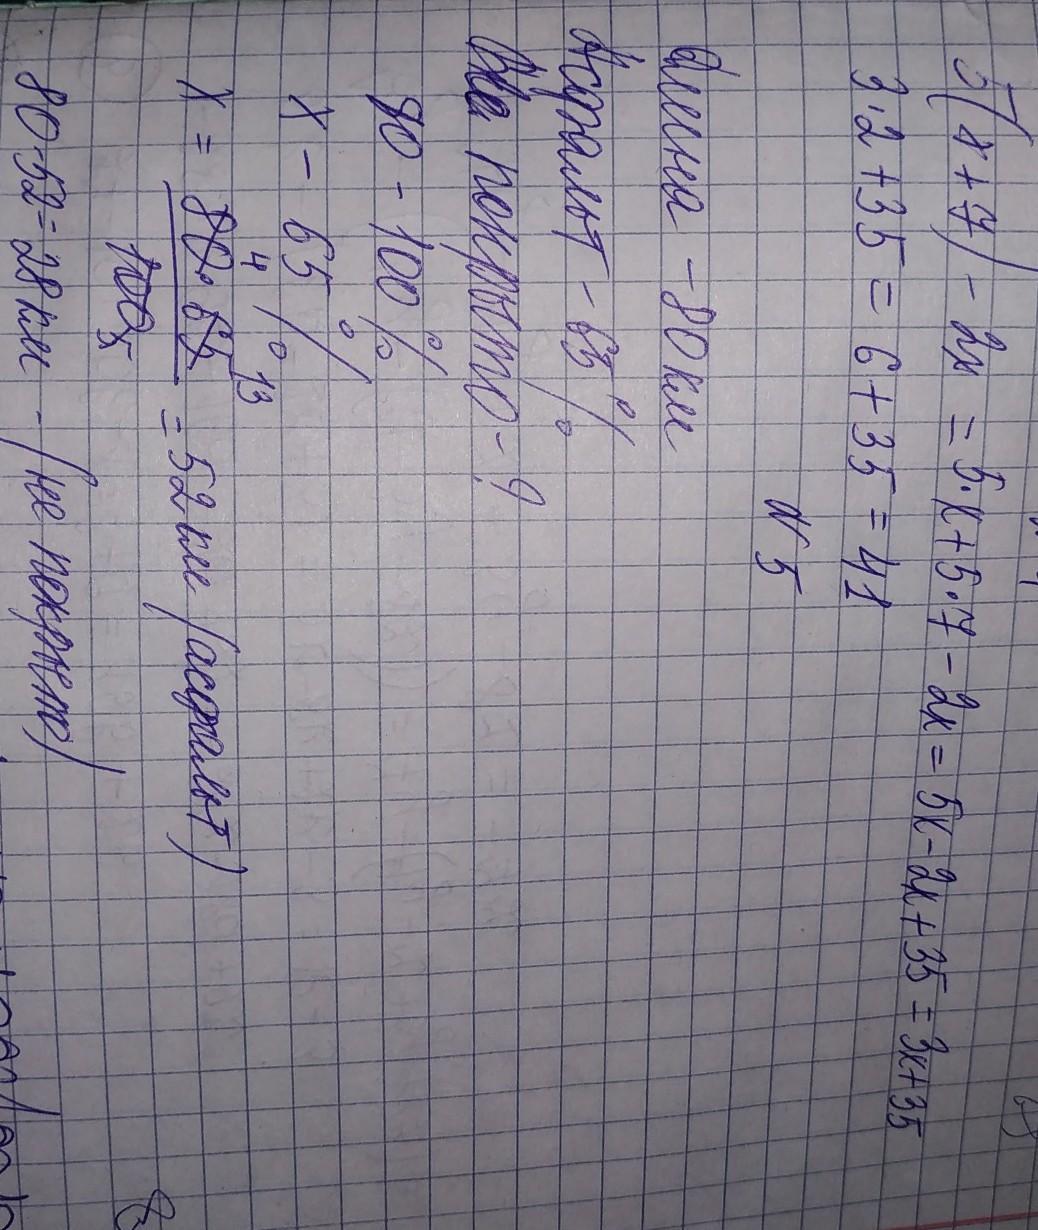 5(x+7)-2x=5·x+5·7-2x=5x-2x+35=3x+35
3·2+35=6+35=41
N 5
Длина - 80 км
Асфальт - 65%
Не покрыто - ?
80 - 100%
x - 65%
4 13
x = 80·65 = 52 км (асфальт)
100 5
80-52=28 км - (не покрыто)